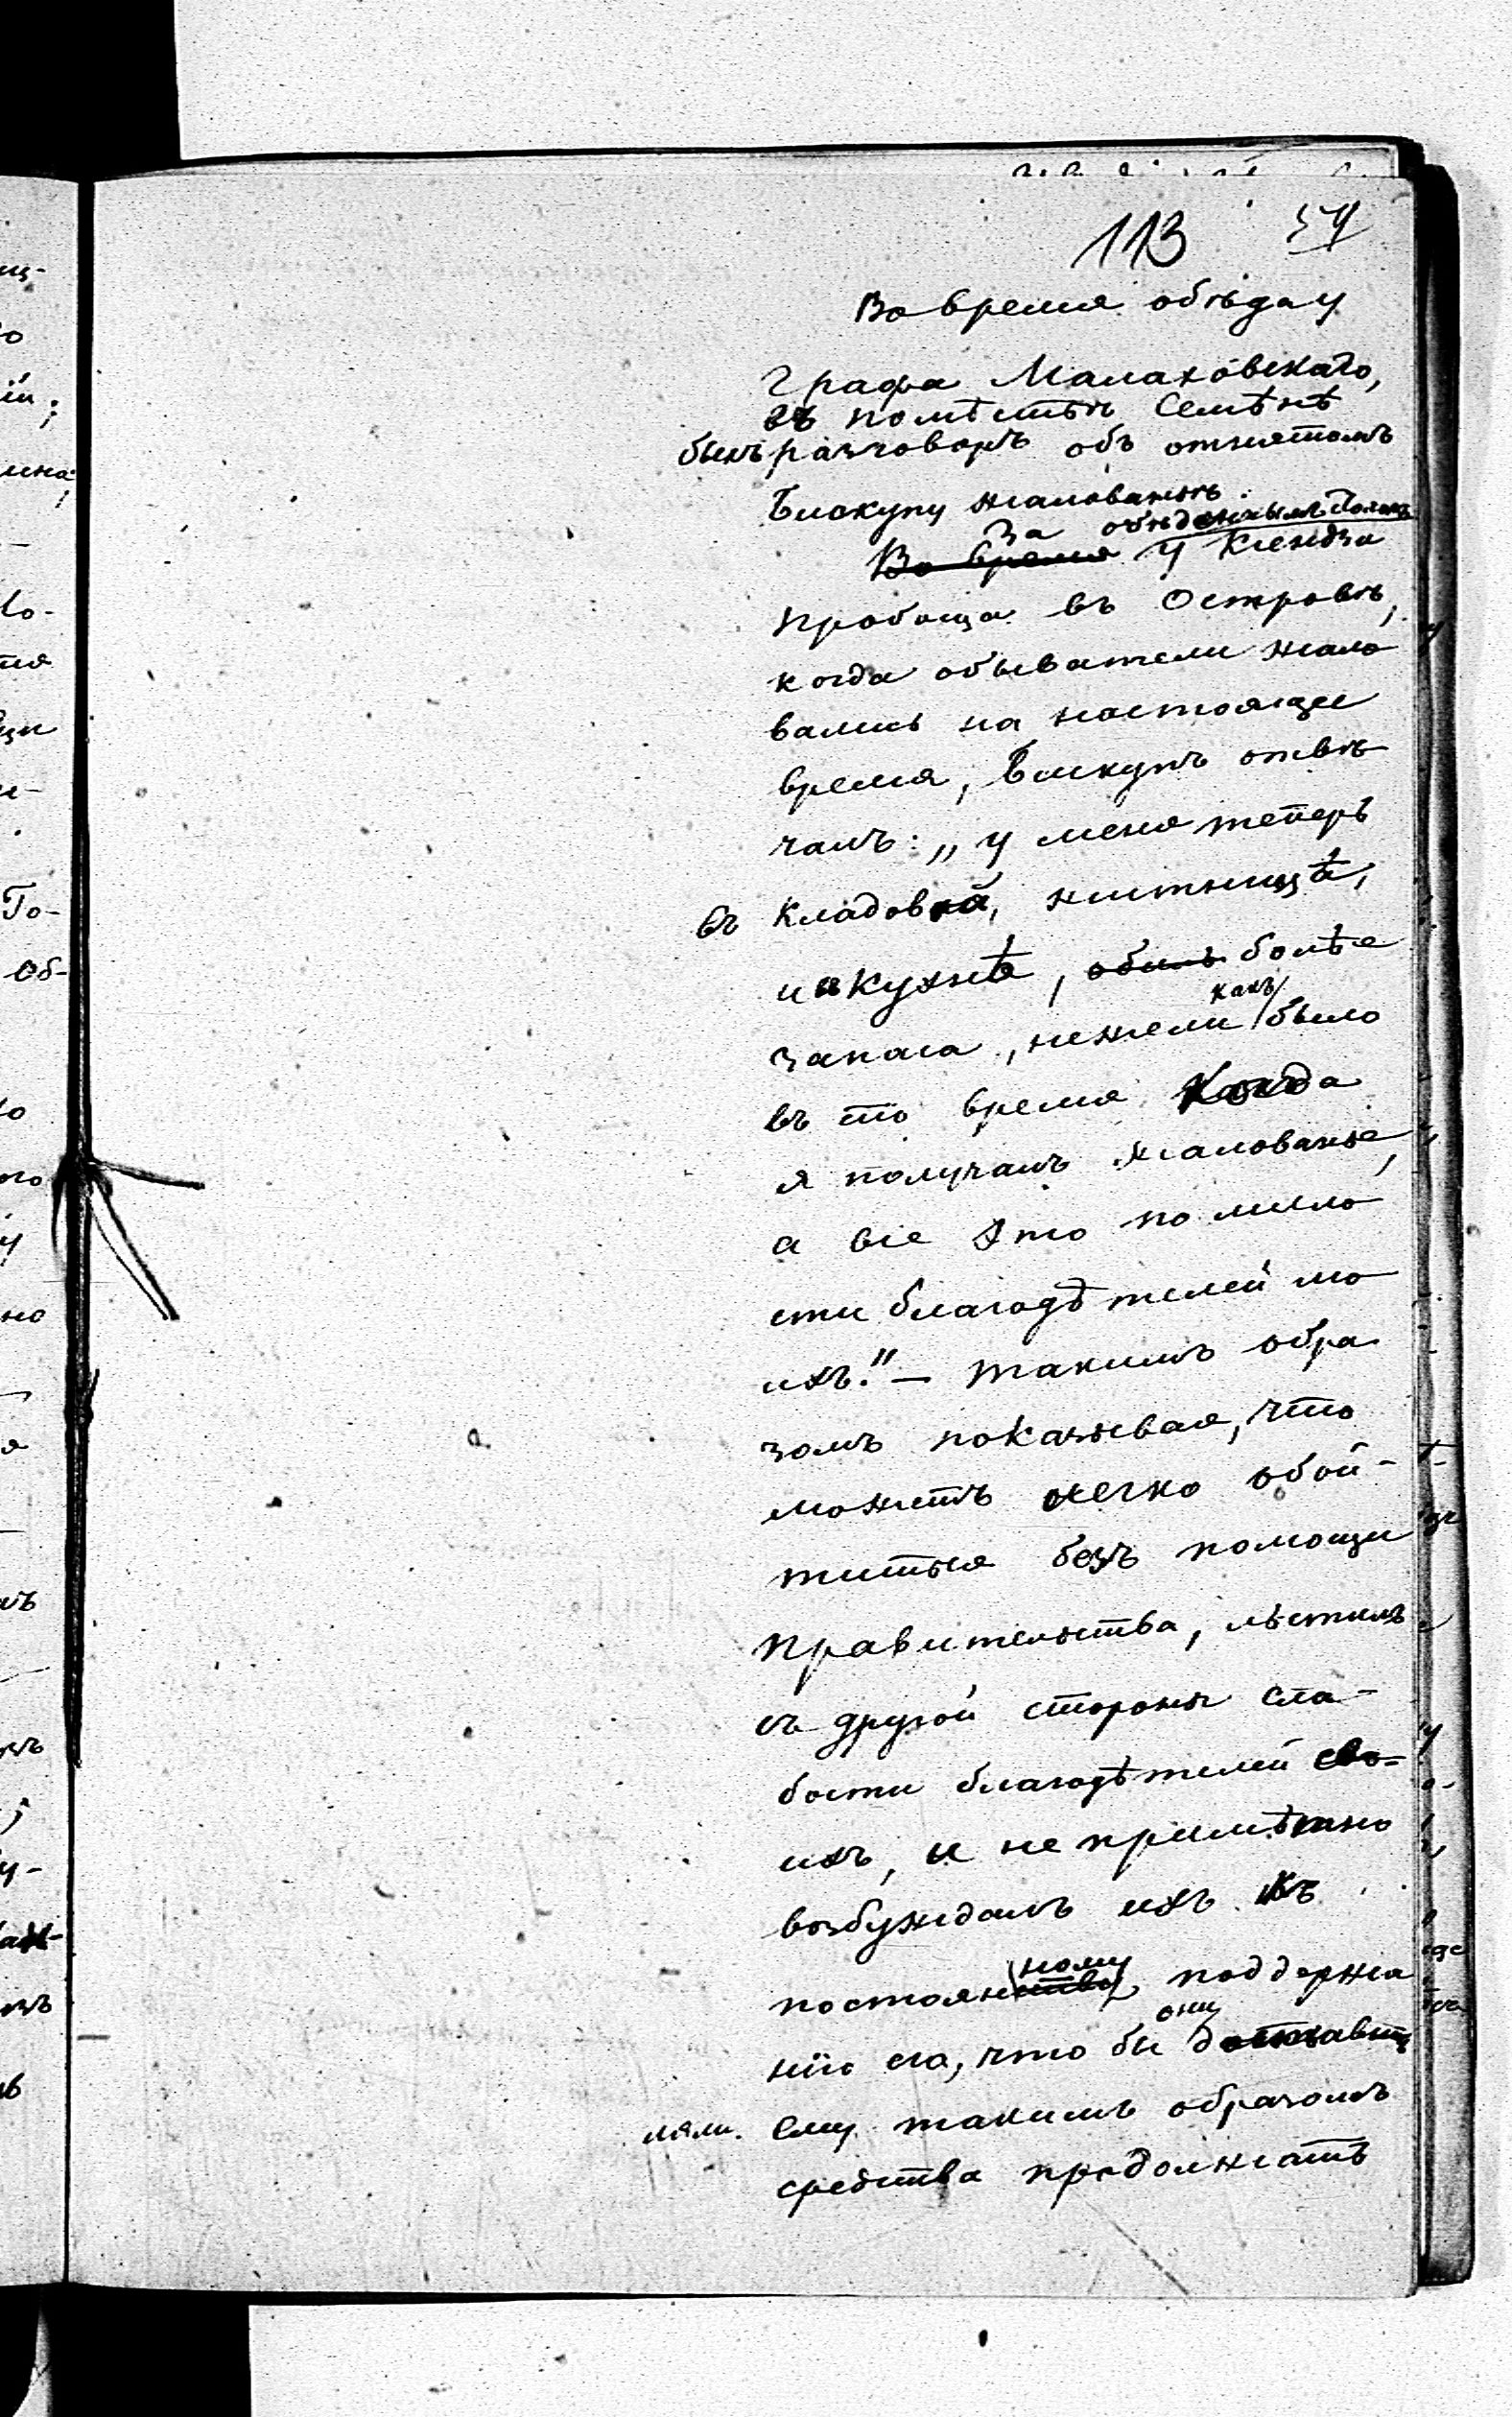 113 54
Во время обѣда у
графа Малаховскаго,
въ помѣстьѣ Семѣнѣ
былъ разговоръ объ отнятомъ
Бискупу жалованьѣ.
За обѣденнымъ столомъ
Во время у Ксендза
пробоща въ Островѣ,
когда обыватели жало
вались на настоящее
время, Бискупъ отвѣ
чалъ: „у меня теперь
въ кладовкѣ, житницѣ,
и кухнѣ, болѣе
какъ
запаса, нежели было
въ то время когда
я получалъ жалованье,
а все это по мило
сти благодѣтелей мо
ихъ." — такимъ обра
зомъ показывая, что
можетъ легко обой-
титься безъ помощи
правительства, льстилъ
съ другой стороны сла-
бости благодѣтелей сво-
ихъ, и непримѣтно
возбуждалъ ихъ къ
ному
постоянству поддержа
они
нію его, что бы достав
ляли. ему такимъ образомъ
средства продолжать